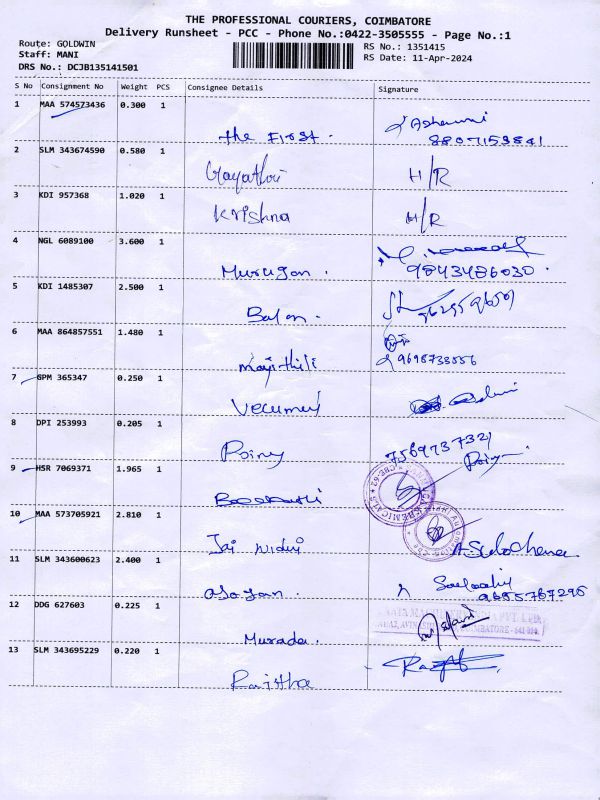 THE PROFESSIONAL COURIERS, COIMBATORE
Delivery Runsheet - PCC - Phone No.:0422-3505555 - Page No.:1
Route: GOLDWIN
Staff: MANI
DRS No.: DCJB135141501
RS No.: 1351415
RS Date: 11-Apr-2024
S No Consignment No Weight PCS Consignee Details Signature
1 MAA 574573436 0.300 1
The First.
8807153841
2 SLM 343674590 0.580 1
Gayathri H/R
3 KDI 957368 1.020 1
Krishna H/R
4 NGL 6089100 3.600 1
Murugan. 9843486030.
5 KDI 1485307 2.500 1
Balan.
6 MAA 864857551 1.480 1
Mayithili 9698733556
7 GPM 365347 0.250 1
8 DPI 253993 0.205 1
7569737321
9 HSR 7069371 1.965 1
10 MAA 573705921 2.810 1
Jai A.Sulochana
11 SLM 343600623 2.400 1
9655767296
12 DDG 627603 0.225 1
COIMBATORE - 641
Murada.
13 SLM 343695229 0.220 1
Rajitha